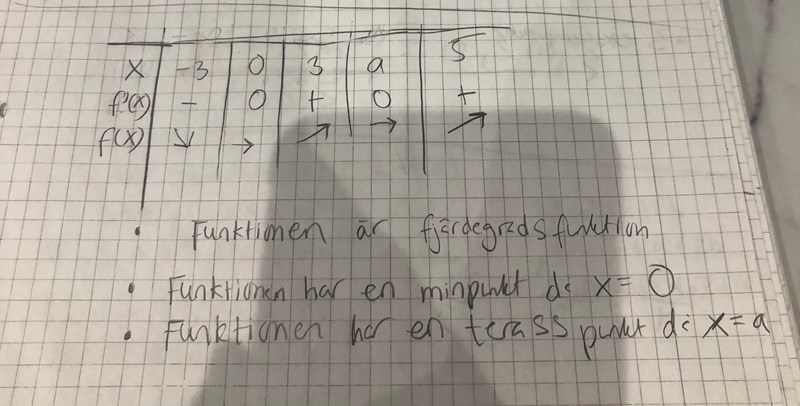 x -3 0 3 a 5
f'(x) - 0 + 0 +
f(x) ↘ → ↗ → ↗
• Funktionen är fjärdegradsfunktion
• Funktionen har en minpunkt då x = 0
• Funktionen har en terass punkt då x = a